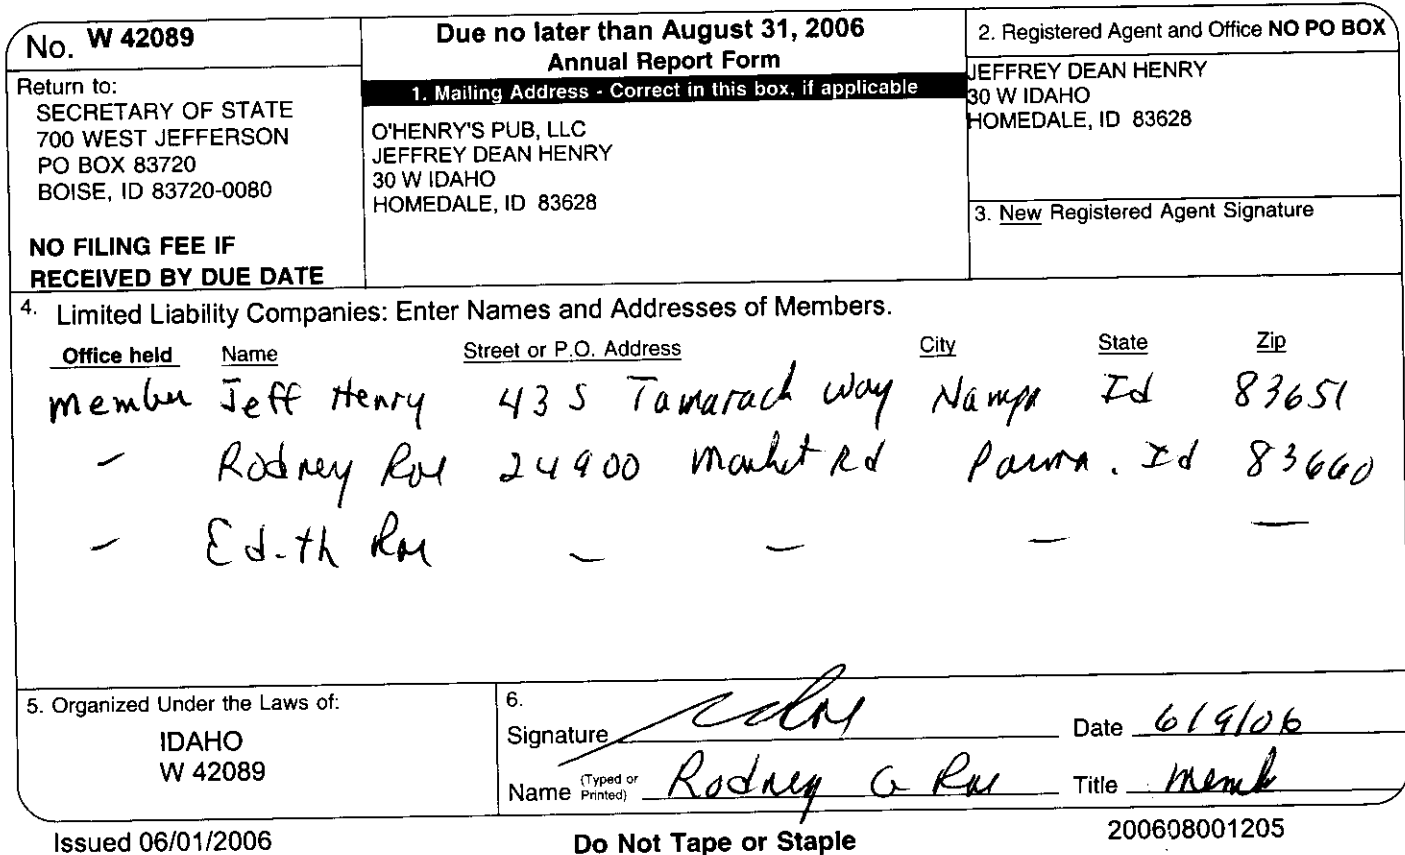 No. W 42089
Return to:
SECRETARY OF STATE
700 WEST JEFFERSON
PO BOX 83720
BOISE, ID 83720-0080
NO FILING FEE IF
RECEIVED BY DUE DATE
Due no later than August 31, 2006
Annual Report Form
1. Mailing Address - Correct in this box, if applicable
O'HENRY'S PUB, LLC
JEFFREY DEAN HENRY
30 W IDAHO
HOMEDALE, ID 83628
2. Registered Agent and Office NO PO BOX
JEFFREY DEAN HENRY
30 W IDAHO
HOMEDALE, ID 83628
3. New Registered Agent Signature
4. Limited Liability Companies: Enter Names and Addresses of Members.
Office held Name Street or P.O. Address City State Zip
member Jeff Henry 43 S Tamarack Way Nampa Id 83651
– Rodney Roe 24900 Market Rd Parma. Id 83660
– Edith Roe – – – –
5. Organized Under the Laws of:
IDAHO
W 42089
6.
Signature Date 6/9/06
Name (Typed or Printed) Rodney G Roe Title Memb
Issued 06/01/2006 Do Not Tape or Staple 200608001205